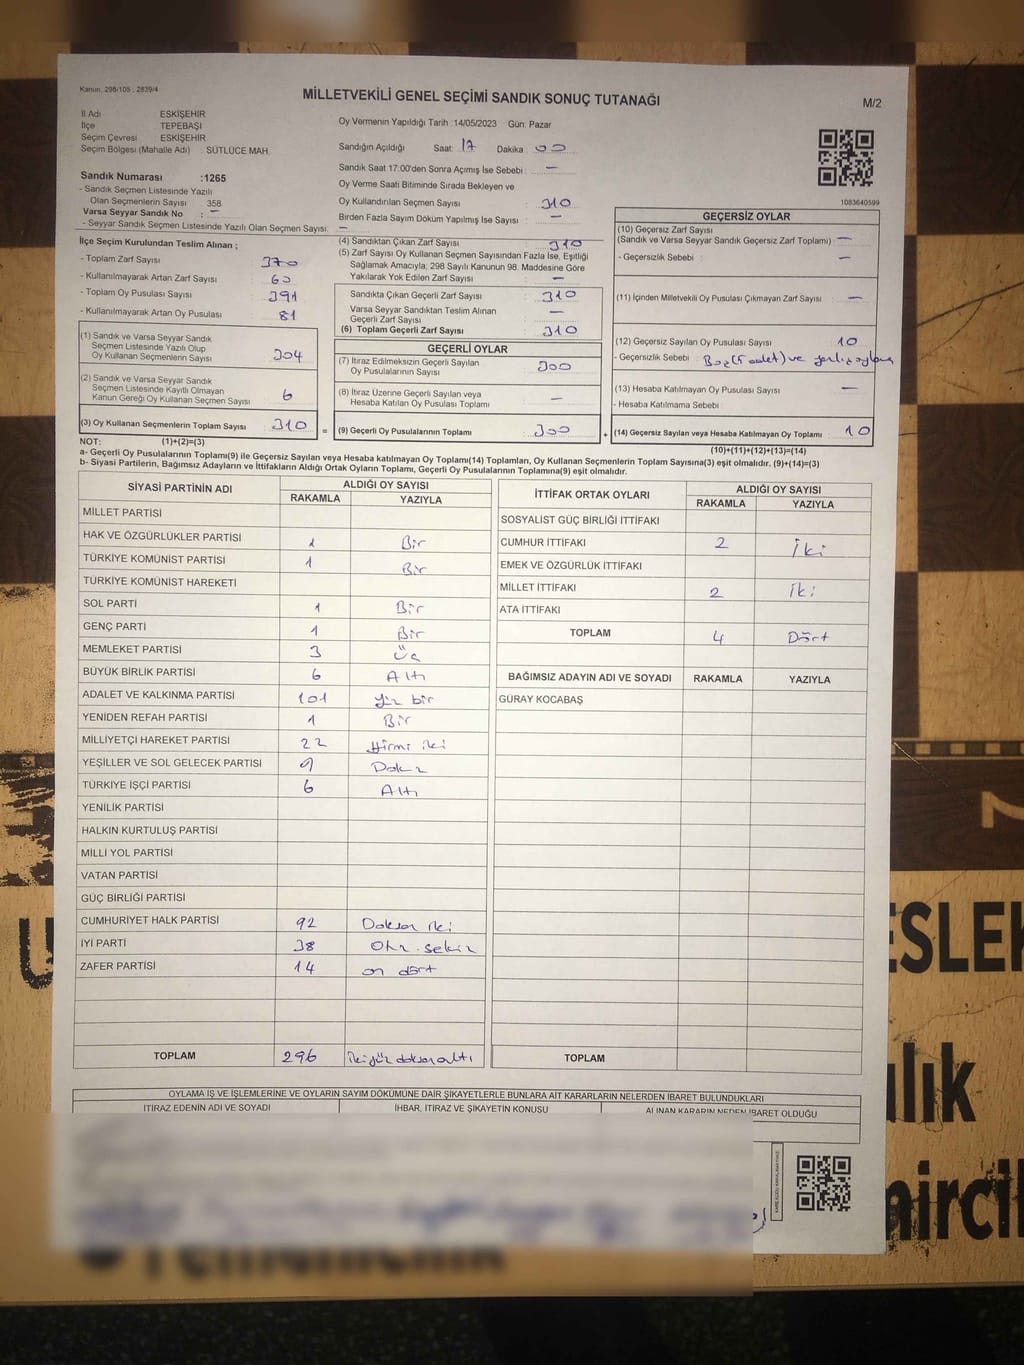 Kanun, 298/105 , 2839/4
MİLLETVEKİLİ GENEL SEÇİMİ SANDIK SONUÇ TUTANAĞI
M/2
İl Adı ESKİŞEHİR
İlçe TEPEBAŞI
Seçim Çevresi ESKİŞEHİR
Seçim Bölgesi (Mahalle Adı) SÜTLÜCE MAH.
Oy Vermenin Yapıldığı Tarih :14/05/2023 Gün: Pazar
Sandığın Açıldığı Saat: 17 Dakika 00
Sandık Saat 17:00'den Sonra Açımış İse Sebebi : —
Oy Verme Saati Bitiminde Sırada Bekleyen ve
Oy Kullandırılan Seçmen Sayısı : 310
Birden Fazla Sayım Döküm Yapılmış İse Sayısı : —
Sandık Numarası :1265
- Sandık Seçmen Listesinde Yazılı
Olan Seçmenlerin Sayısı 358
Varsa Seyyar Sandık No : —
- Seyyar Sandık Seçmen Listesinde Yazılı Olan Seçmen Sayısı: —
1083640599
İlçe Seçim Kurulundan Teslim Alınan ;
- Toplam Zarf Sayısı : 370
- Kullanılmayarak Artan Zarf Sayısı : 60
- Toplam Oy Pusulası Sayısı : 391
- Kullanılmayarak Artan Oy Pusulası : 81
(1) Sandık ve Varsa Seyyar Sandık
Seçmen Listesinde Yazılı Olup
Oy Kullanan Seçmenlerin Sayısı : 304
(2) Sandık ve Varsa Seyyar Sandık
Seçmen Listesinde Kayıtlı Olmayan
Kanun Gereği Oy Kullanan Seçmen Sayısı : 6
(3) Oy Kullanan Seçmenlerin Toplam Sayısı : 310
(4) Sandıktan Çıkan Zarf Sayısı : 310
(5) Zarf Sayısı Oy Kullanan Seçmen Sayısından Fazla İse, Eşitliği
Sağlamak Amacıyla; 298 Sayılı Kanunun 98. Maddesine Göre
Yakılarak Yok Edilen Zarf Sayısı : —
Sandıkta Çıkan Geçerli Zarf Sayısı : 310
Varsa Seyyar Sandıktan Teslim Alınan
Geçerli Zarf Sayısı : —
(6) Toplam Geçerli Zarf Sayısı : 310
GEÇERLİ OYLAR
(7) İtiraz Edilmeksizin Geçerli Sayılan
Oy Pusulalarının Sayısı : 300
(8) İtiraz Üzerine Geçerli Sayılan veya
Hesaba Katılan Oy Pusulası Toplamı : —
= (9) Geçerli Oy Pusulalarının Toplamı : 300
GEÇERSİZ OYLAR
(10) Geçersiz Zarf Sayısı
(Sandık ve Varsa Seyyar Sandık Geçersiz Zarf Toplamı) : —
- Geçersizlik Sebebi : —
(11) İçinden Milletvekili Oy Pusulası Çıkmayan Zarf Sayısı : —
(12) Geçersiz Sayılan Oy Pusulası Sayısı : 10
- Geçersizlik Sebebi : Boş(5 adet) ve
(13) Hesaba Katılmayan Oy Pusulası Sayısı : —
- Hesaba Katılmama Sebebi
+ (14) Geçersiz Sayılan veya Hesaba Katılmayan Oy Toplamı : 10
NOT: (1)+(2)=(3) (10)+(11)+(12)+(13)=(14)
a- Geçerli Oy Pusulalarının Toplamı(9) ile Geçersiz Sayılan veya Hesaba katılmayan Oy Toplamı(14) Toplamları, Oy Kullanan Seçmenlerin Toplam Sayısına(3) eşit olmalıdır. (9)+(14)=(3)
b- Siyasi Partilerin, Bağımsız Adayların ve İttifakların Aldığı Ortak Oyların Toplamı, Geçerli Oy Pusulalarının Toplamına(9) eşit olmalıdır.
SİYASİ PARTİNİN ADI ALDIĞI OY SAYISI
RAKAMLA YAZIYLA
MİLLET PARTİSİ
HAK VE ÖZGÜRLÜKLER PARTİSİ 1 Bir
TÜRKİYE KOMÜNİST PARTİSİ 1 Bir
TÜRKİYE KOMÜNİST HAREKETİ
SOL PARTİ 1 Bir
GENÇ PARTİ 1 Bir
MEMLEKET PARTİSİ 3 Üç
BÜYÜK BİRLİK PARTİSİ 6 Altı
ADALET VE KALKINMA PARTİSİ 101 Yüz bir
YENİDEN REFAH PARTİSİ 1 Bir
MİLLİYETÇİ HAREKET PARTİSİ 22 Yirmi iki
YEŞİLLER VE SOL GELECEK PARTİSİ 9 Dokuz
TÜRKİYE İŞÇİ PARTİSİ 6 Altı
YENİLİK PARTİSİ
HALKIN KURTULUŞ PARTİSİ
MİLLİ YOL PARTİSİ
VATAN PARTİSİ
GÜÇ BİRLİĞİ PARTİSİ
CUMHURİYET HALK PARTİSİ 92 Doksan iki
İYİ PARTİ 38 Otuz sekiz
ZAFER PARTİSİ 14 on dört
TOPLAM 296 ikiyüz doksan altı
İTTİFAK ORTAK OYLARI ALDIĞI OY SAYISI
RAKAMLA YAZIYLA
SOSYALİST GÜÇ BİRLİĞİ İTTİFAKI
CUMHUR İTTİFAKI 2 İki
EMEK VE ÖZGÜRLÜK İTTİFAKI
MİLLET İTTİFAKI 2 İki
ATA İTTİFAKI
TOPLAM 4 Dört
BAĞIMSIZ ADAYIN ADI VE SOYADI RAKAMLA YAZIYLA
GÜRAY KOCABAŞ
TOPLAM
OYLAMA İŞ VE İŞLEMLERİNE VE OYLARIN SAYIM DÖKÜMÜNE DAİR ŞİKAYETLERLE BUNLARA AİT KARARLARIN NELERDEN İBARET BULUNDUKLARI
İTİRAZ EDENİN ADI VE SOYADI İHBAR, İTİRAZ VE ŞİKAYETİN KONUSU ALINAN KARARIN NEDEN İBARET OLDUĞU
ESLEK
alık
mircil